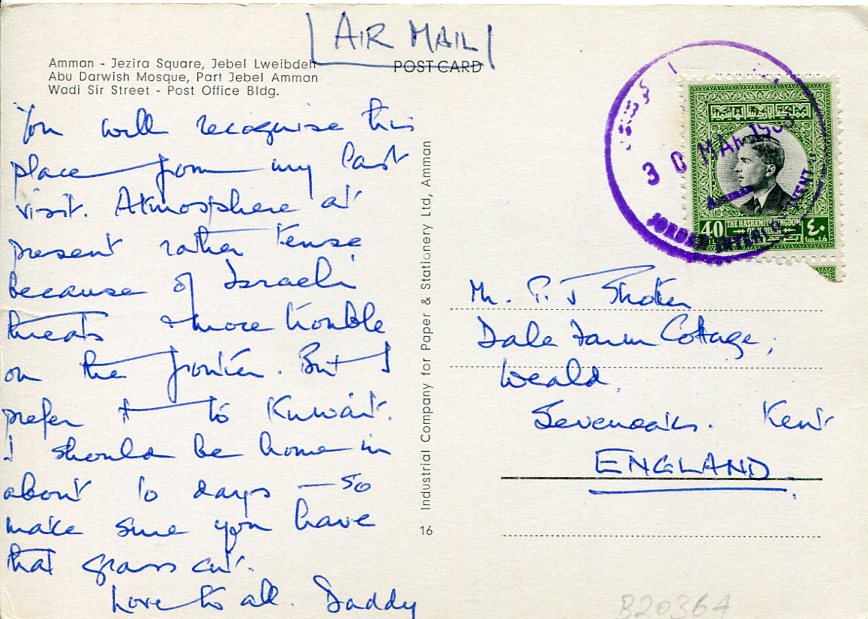 AIR MAIL
Amman - Jezira Square, Jebel Lweibdeh
Abu Darwish Mosque, Part Jebel Amman
Wadi Sir Street - Post Office Bldg.
POST CARD
You will recognise this
place from my last
visit. Atmosphere at
present rather tense
because of Israeli
threats & more trouble
on the frontier. But I
prefer it to Kuwait.
I should be home in
about 10 days - so
make sure you have
that grass cut.
Love to all. Daddy
Industrial Company for Paper & Stationery Ltd, Amman
16
المملكة الأردنية الهاشمية
30 MAR
AMMAN
40 THE HASHEMITE KINGDOM ٤٠
JORDAN
Mr. P. J
Dale Farm Cottage,
Weald,
Sevenoaks. Kent
ENGLAND.
B20364